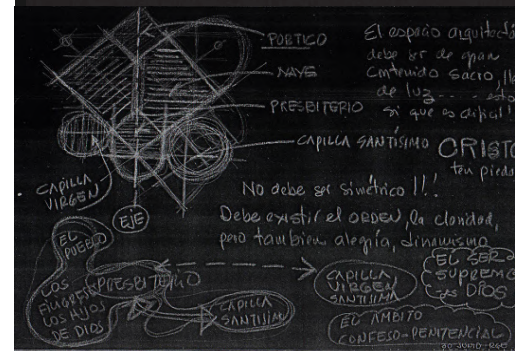 PORTICO
NAVE
PRESBITERIO
CAPILLA SANTÍSIMO
CAPILLA
VIRGEN
EJE
El espacio
debe ser de gran
contenido sacro,
de luz.... esto
si que es dificil!
CRISTO
ten piedad
No debe ser simétrico!!!
Debe existir el ORDEN, la claridad,
pero tambien alegría, dinamismo
EL
PUEBLO
LOS
FILIGRESES
LOS HIJOS
DE DIOS
PRESBITERIO
CAPILLA
SANTISIMO
CAPILLA
VIRGEN
SANTISIMA
EL SER
SUPREMO
es DIOS
EL AMBITO
CONFESO-PENITENCIAL